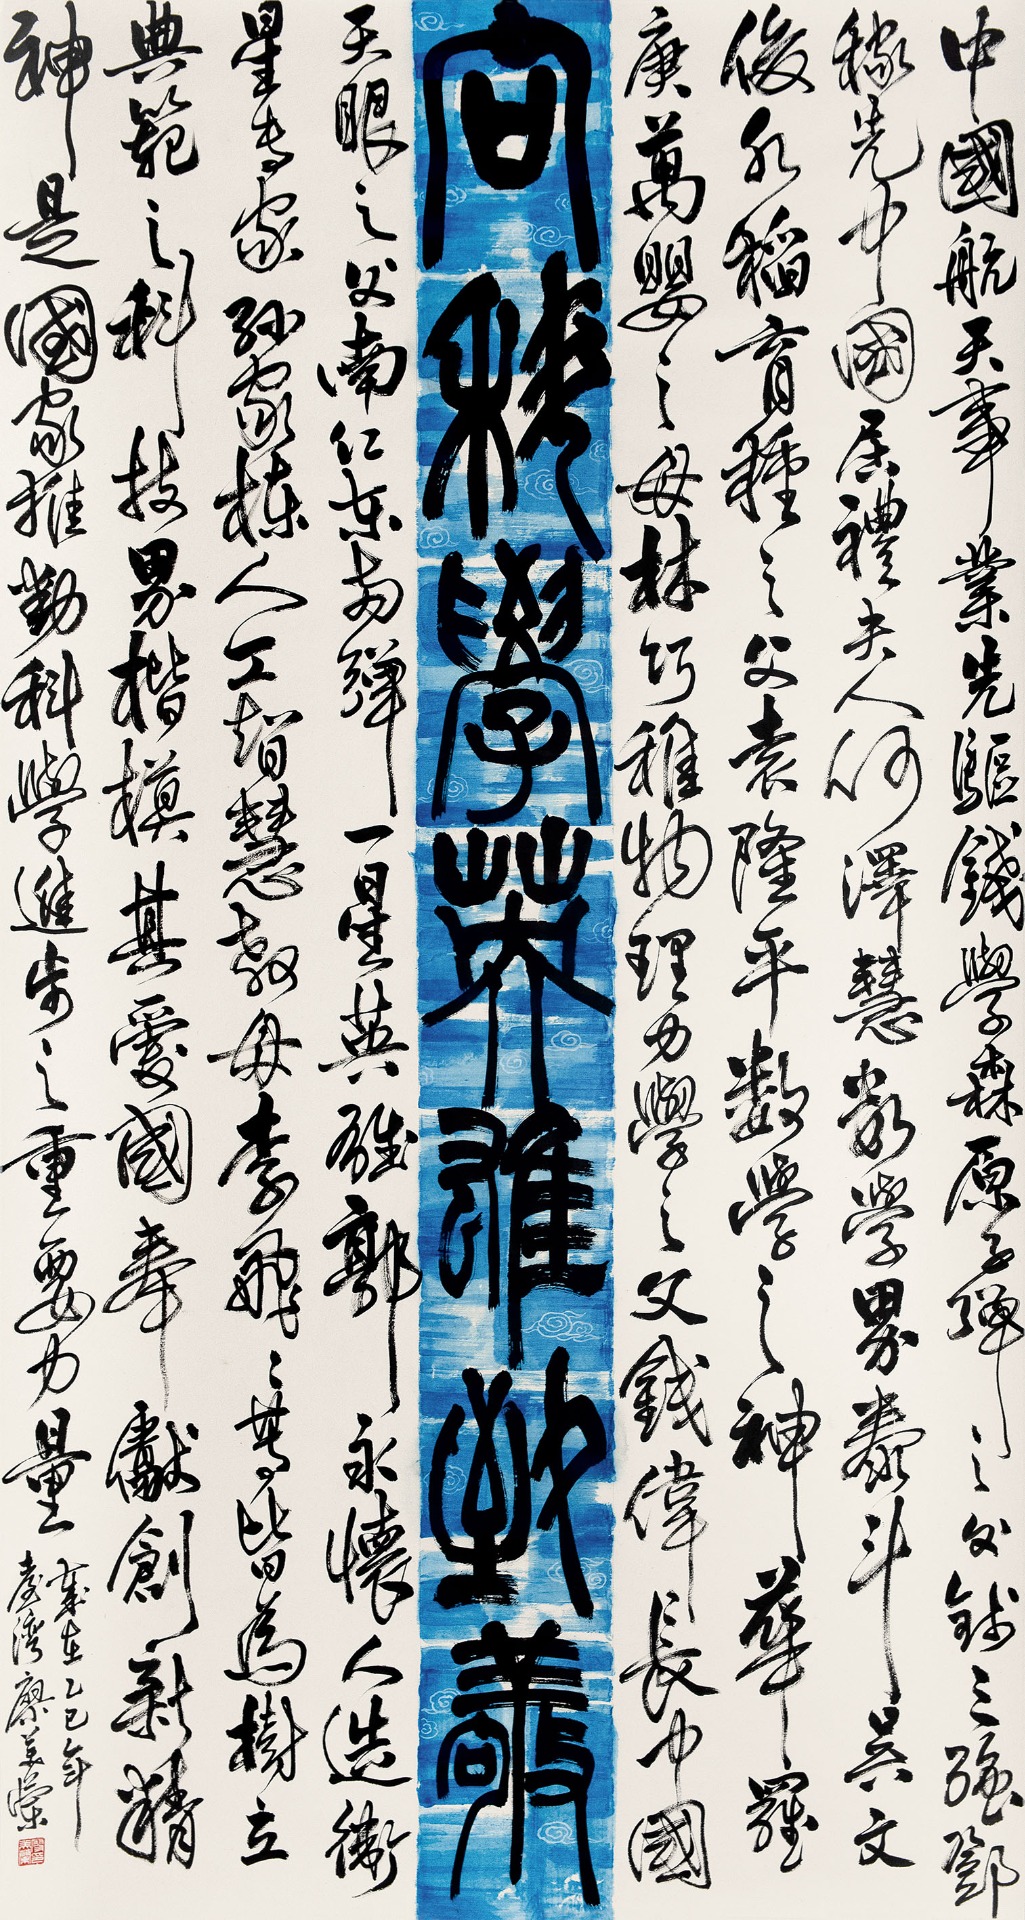 中國航天事業先驅錢學森原子彈之父錢三強鄧
稼先中國居禮夫人何澤慧數學界泰斗吳文
俊水稻育種之父袁隆平數學之神華羅
庚萬嬰之母林巧稚物理力學之父錢偉長中國
向科學英雄致敬
天眼之父南仁東兩彈一星英雄郭永懷人造衛
星專家孫家棟人工智慧教母李飛飛等皆為樹立
典範之科技界楷模其愛國奉獻創新精
神是國家推動科學進步之重要力量
歲在乙巳年
臺灣廖美